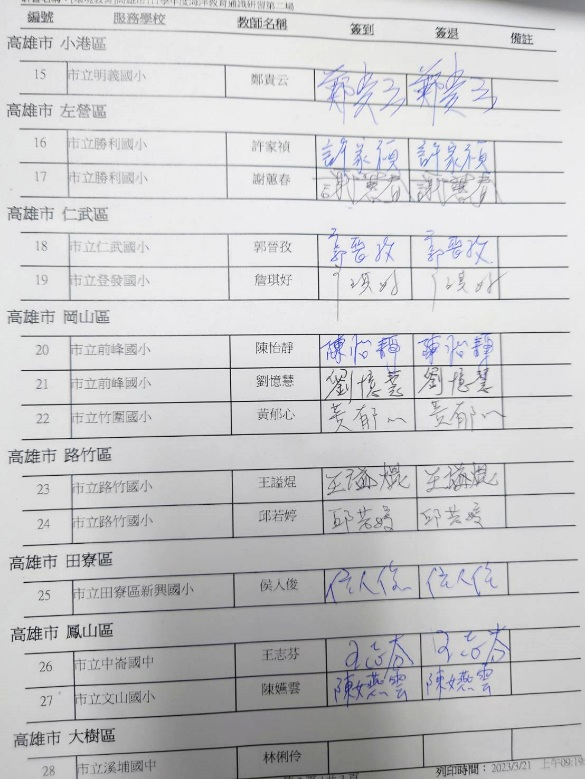 編號 服務學校 教師名稱 簽到 簽退 備註
高雄市 小港區
15 市立明義國小 鄭貴云 鄭貴云 鄭貴云
高雄市 左營區
16 市立勝利國小 許家禎 許家禎 許家禎
17 市立勝利國小 謝蕙春 謝蕙春 謝蕙春
高雄市 仁武區
18 市立仁武國小 郭晉孜 郭晉孜 郭晉孜
19 市立登發國小 詹琪好
高雄市 岡山區
20 市立前峰國小 陳怡靜 陳怡靜 陳怡靜
21 市立前峰國小 劉憶慧 劉憶慧 劉憶慧
22 市立竹圍國小 黃郁心 黃郁心 黃郁心
高雄市 路竹區
23 市立路竹國小 王謚焜
24 市立路竹國小 邱若婷 邱若婷 邱若婷
高雄市 田寮區
25 市立田寮區新興國小 侯人俊
高雄市 鳳山區
26 市立中崙國中 王志芬 王志芬 王志芬
27 市立文山國小 陳嬿雲 陳嬿雲 陳嬿雲
高雄市 大樹區
28 市立溪埔國中 林俐伶
列印時間： 2023/3/21 上午09:19